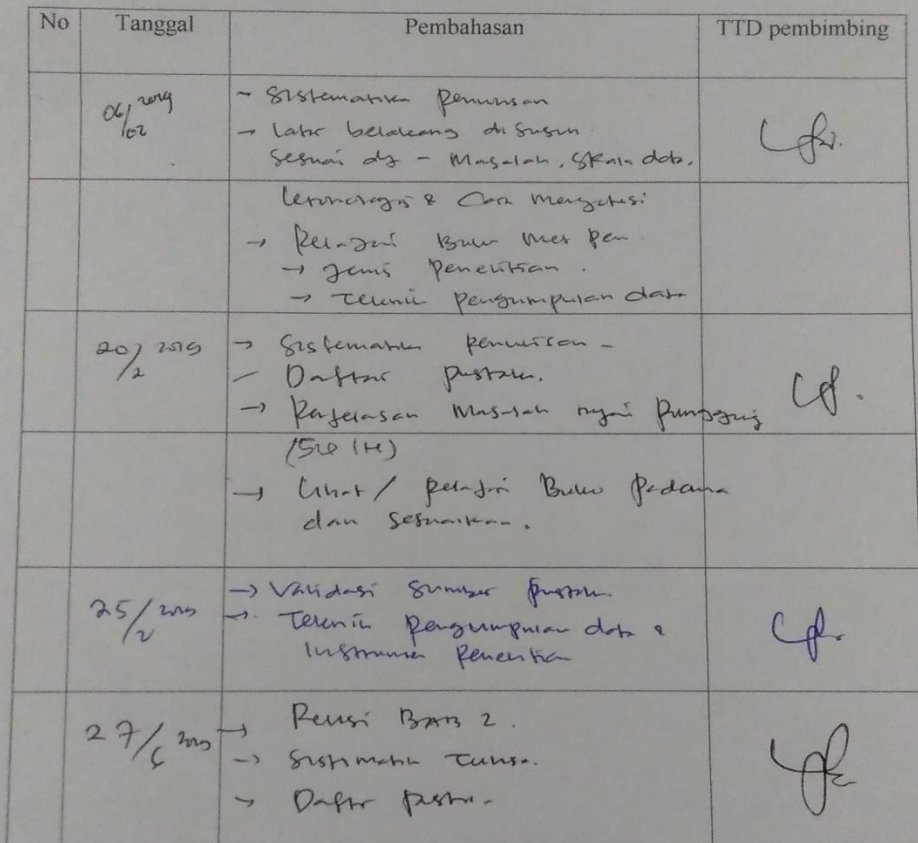 No Tanggal Pembahasan TTD pembimbing
06/02 2019
- Sistematika penulisan
→ latar belakang di susun
sesuai dg - Masalah, skala data,
kronologis & Cara mengatasi
→ Pelajari Buku Met Pen
→ Jenis penelitian.
→ Teknik pengumpulan data
20/2 2019
→ Sistematika penulisan -
- Daftar pustaka.
→ Penjelasan Masalah nyeri punggung
→ Lihat / pelajari Buku Pedoman
dan sesuaikan.
25/2 2019
→ Validasi sumber pustaka
→ Teknik pengumpulan data &
Instrumen Penelitian
27/ 2019
→ Revisi BAB 2.
→ Sistimatik Tulisan.
→ Daftar pustaka